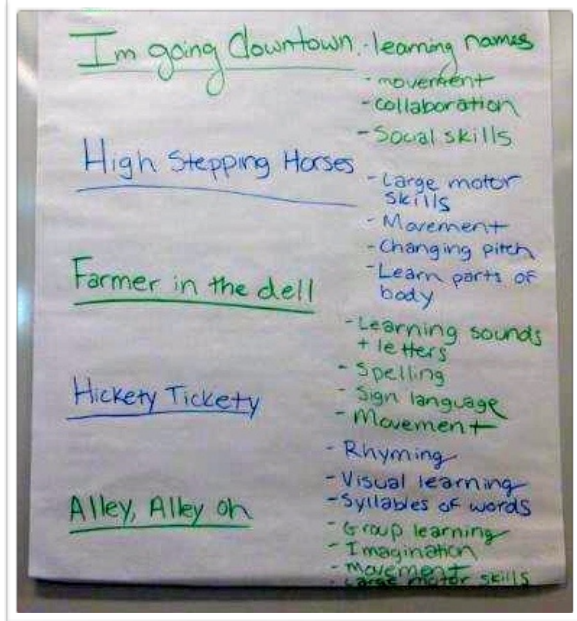 Im going downtown. - learning names
- movement
- collaboration
- Social skills
High Stepping Horses
- Large motor
skills
- Movement
- Changing pitch
- Learn parts of
body
Farmer in the dell
- Learning sounds
+ letters
- Spelling
- Sign language
- Movement
Hickety Tickety
- Rhyming
- Visual learning
- Syllables of words
Alley, Alley oh
- Group learning
- Imagination
- movement
- Large motor skills